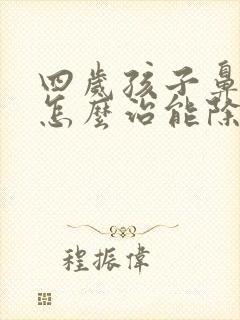 四歲孩子鼻
怎麼治能除
程振偉